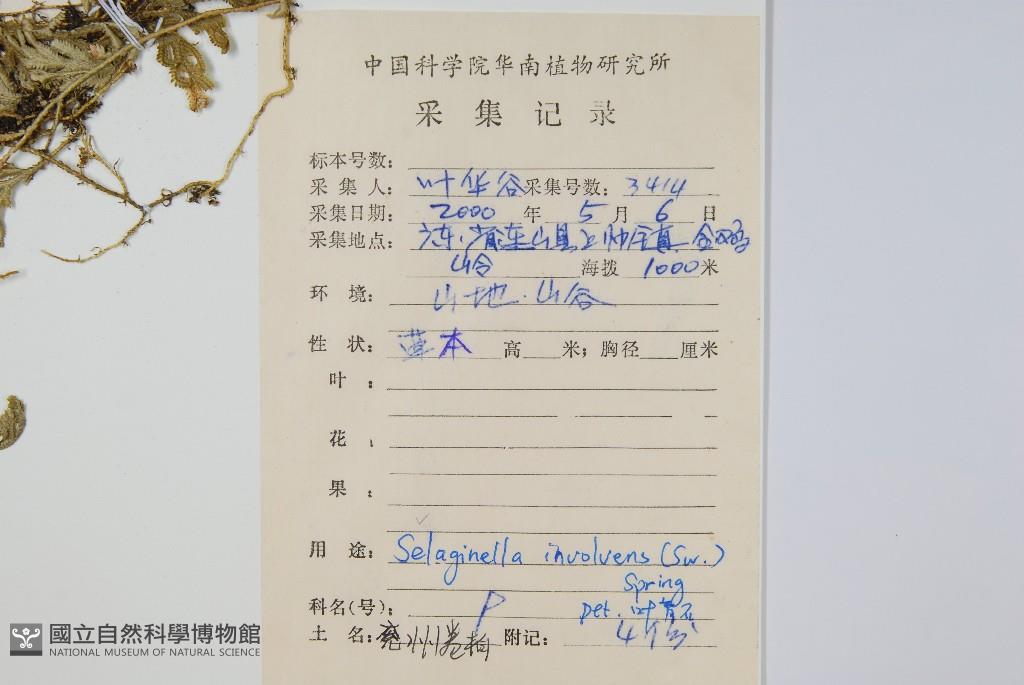 中国科学院华南植物研究所
采集记录
标本号数:
采集人: 叶华谷 采集号数: 3414
采集日期: 2000 年 5 月 6 日
采集地点: 广东省连山县上帅镇
海拨 1000 米
环境: 山地·山谷
性状: 草本 高 米; 胸径 厘米
叶:
花:
果:
用途: Selaginella involvens (Sw.)
Spring
科名(号): P Det.
土名: 兖州卷柏 附记:
國立自然科學博物館
NATIONAL MUSEUM OF NATURAL SCIENCE